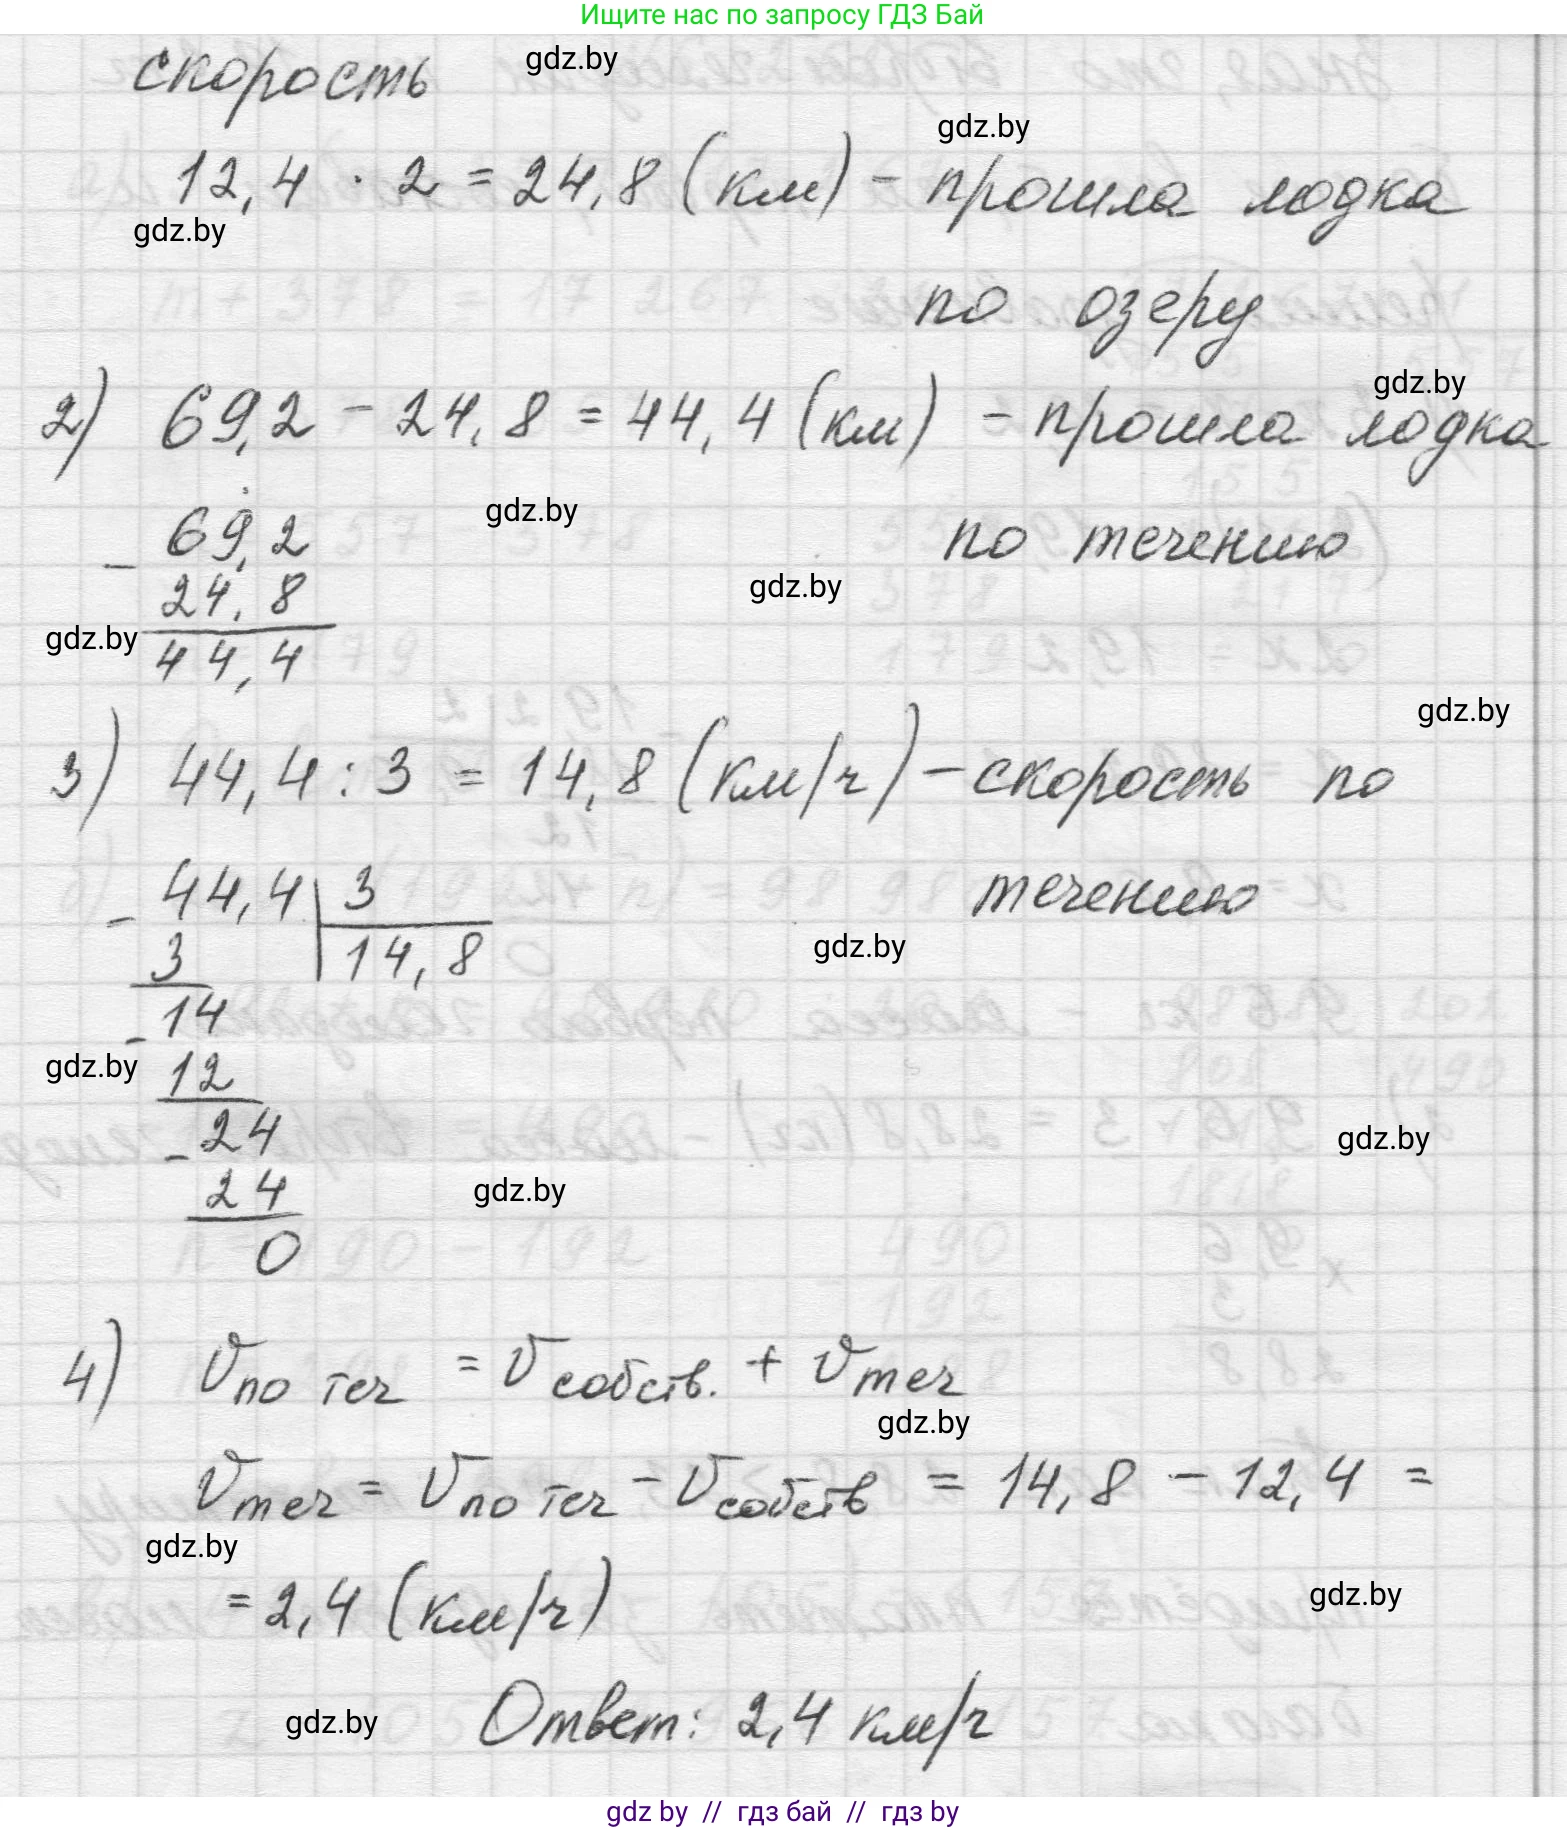 Ищите нас по запросу ГДЗ Бай
скорость
gdz.by
gdz.by
12,4 · 2 = 24,8 (км) - прошла лодка
gdz.by
по озеру
gdz.by
2) 69,2 - 24,8 = 44,4 (км) - прошла лодка
gdz.by
по течению
- 69,2
24,8
gdz.by
gdz.by
44,4
gdz.by
3) 44,4 : 3 = 14,8 (км/ч) - скорость по
течению
- 44,4 | 3
3 | 14,8
gdz.by
- 14
gdz.by
12
- 24
gdz.by
24
gdz.by
0
4) v по теч = v собств. + v теч
gdz.by
v теч = v по теч - v собств = 14,8 - 12,4 =
gdz.by
= 2,4 (км/ч)
gdz.by
Ответ: 2,4 км/ч
gdz.by
gdz by // гдз бай // гдз by